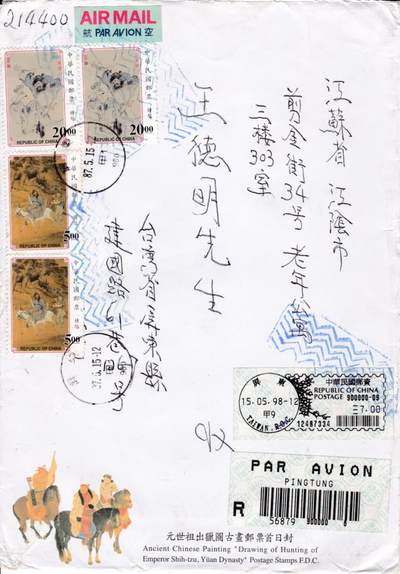 214400
AIR MAIL
航 PAR AVION 空
中華民國郵票
20.00
REPUBLIC OF CHINA
中華民國郵票
20.00
REPUBLIC OF CHINA
中華民國郵票
5.00
REPUBLIC OF CHINA
中華民國郵票
5.00
REPUBLIC OF CHINA
87.5.15
江蘇省 江陰市
剪金街34号 老年公寓
三楼303室
王德明先生
收
中華民國郵資
REPUBLIC OF CHINA
POSTAGE 900000-09
7.00
12487334
15.05.98-12
甲9
TAIWAN, R.O.C.
PAR AVION
PINGTUNG
R
56879 900000 6
元世祖出獵圖古畫郵票首日封
Ancient Chinese Painting "Drawing of Hunting of
Emperor Shih-tzu, Yüan Dynasty" Postage Stamps F.D.C.